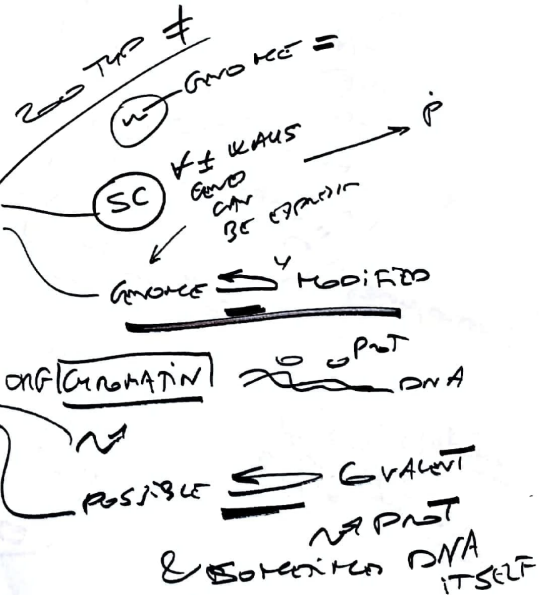 200 TYP ≠
N GENOME =
SC
∀ ± WAYS
GENO
CAN
BE EXPRESS
P
GENOME MODIFIED
ORG CHROMATIN PROT DNA
POSSIBLE COVALENT
PROT
& SOMETIMES DNA
ITSELF